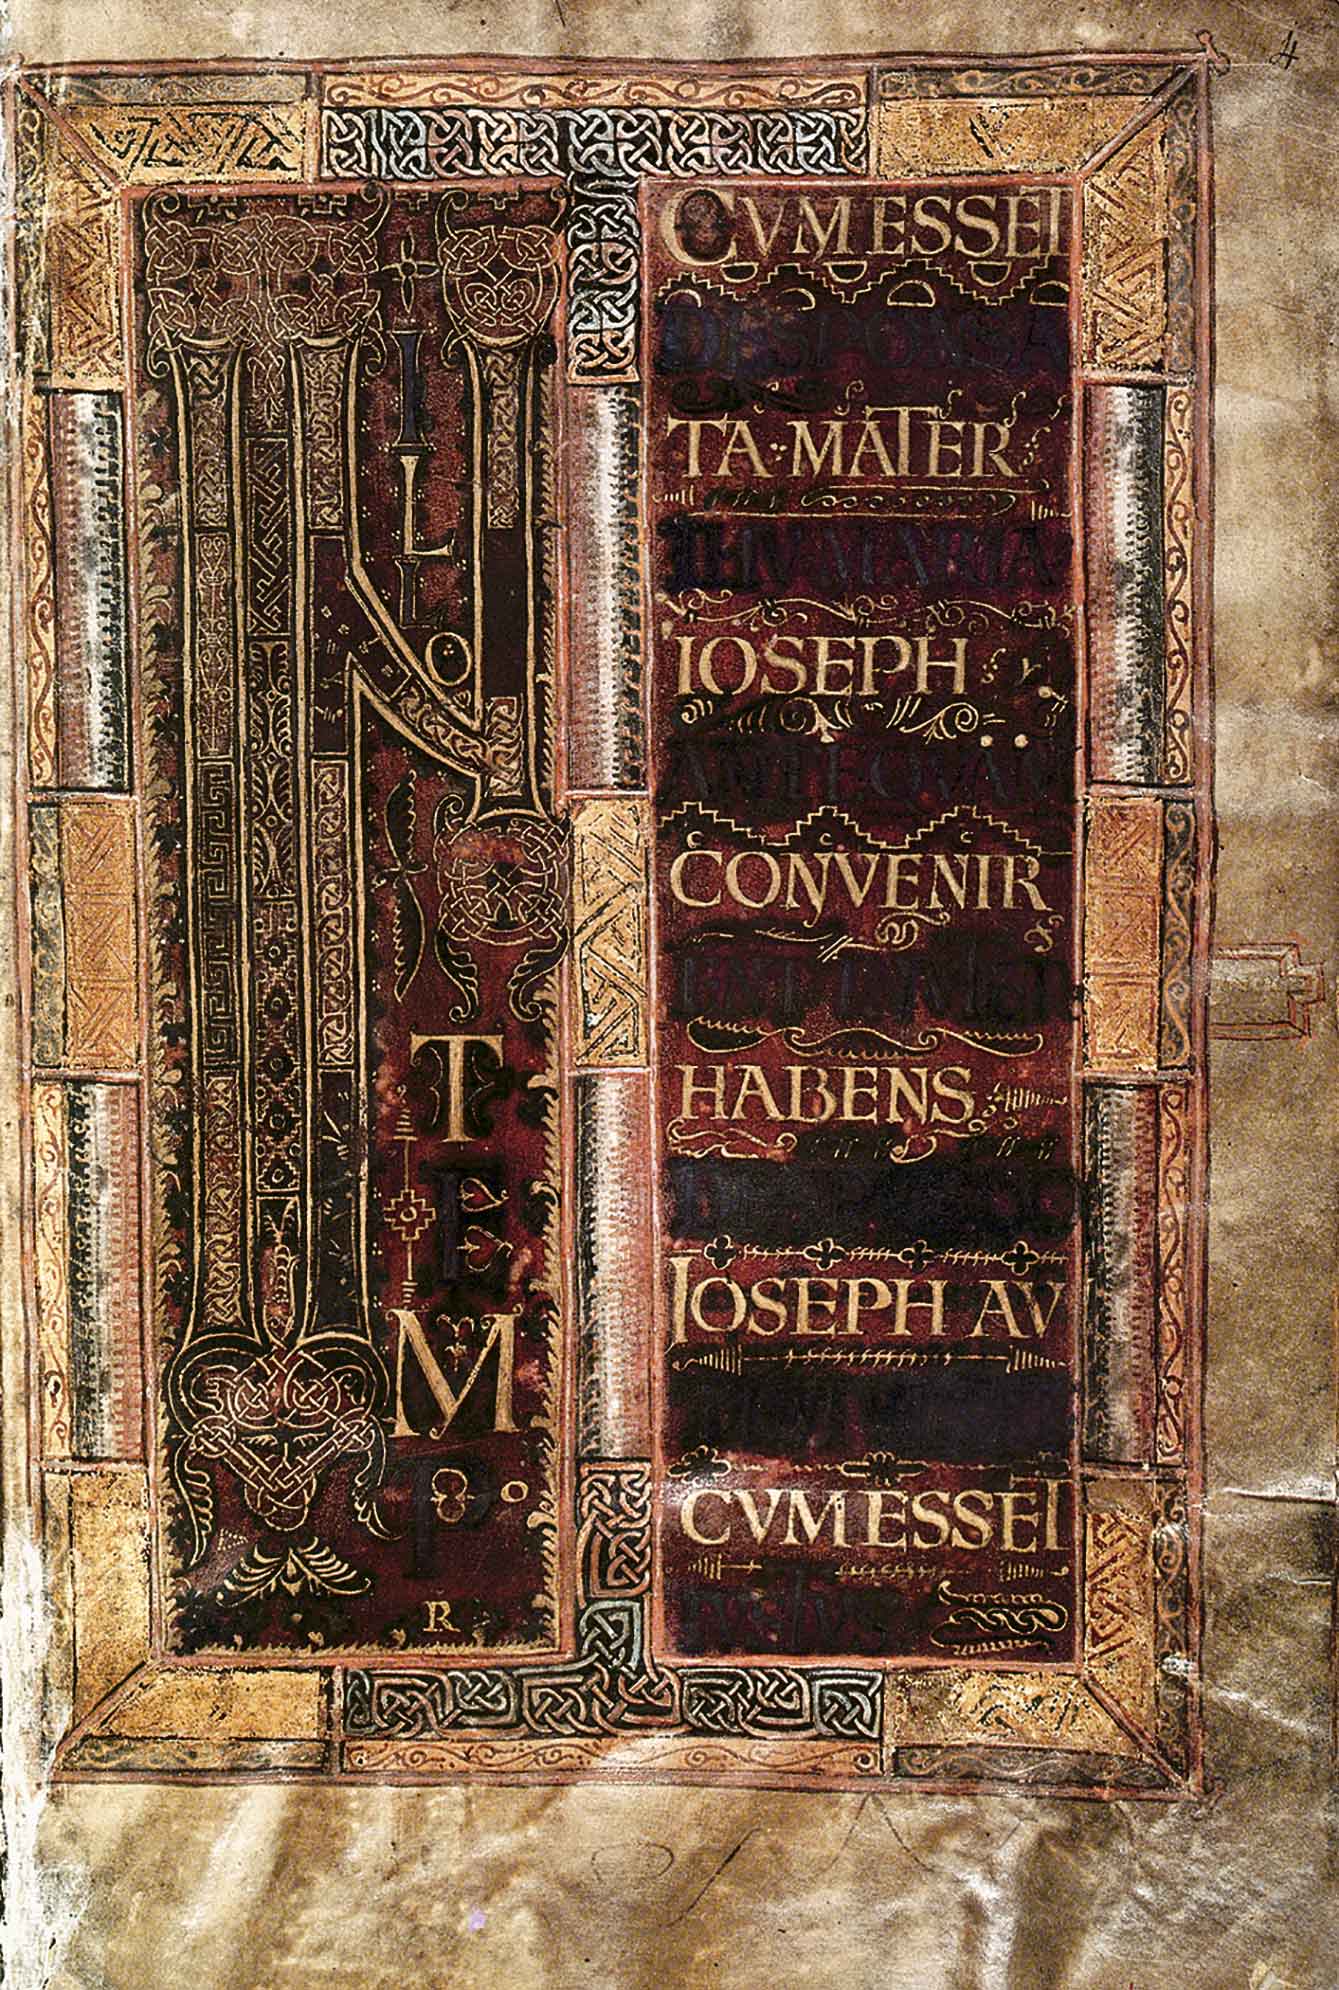 4
IN
ILLO
TEMP
R
CVM ESSET
DESPONSA
TA · MATER
IHV MARIA
IOSEPH
ANTEQVAM
CONVENIR
HABENS
IOSEPH AV
CVM ESSET
IVSTVS